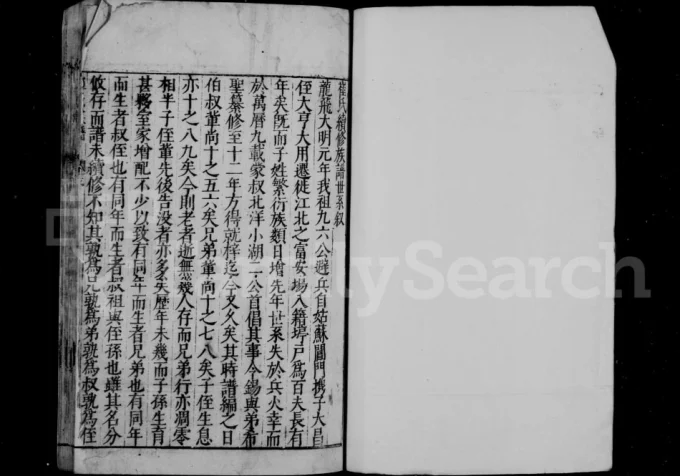 崔氏續修族譜世系叙
龍飛大明元年我祖九六公避兵自姑蘇閶門携子大昌
侄大亨大用遷徙江北之富安塲入籍塲戶爲百夫長有
年矣旣而子姓繁衍族類日增先年世系失於兵火幸而
於萬曆九載家叔北洋小湖二公首倡其事今錫與弟希
聖纂修至十二年方得就梓迄今又久矣其時譜編之日
伯叔輩尚十之五六矣兄弟輩尚十之七八矣子侄生息
亦十之八九矣今則老者逝無幾人存而兄弟行亦凋零
相半子侄輩先後告没者亦多矣歷年未幾而子孫生育
甚夥至家增配不少以致有同年而生者兄弟也有同年
而生者叔侄也有同年而生者叔祖與侄孫也雖其名分
攸存而譜未續修不知其孰爲兄孰爲弟孰爲叔孰爲侄
FamilySearch